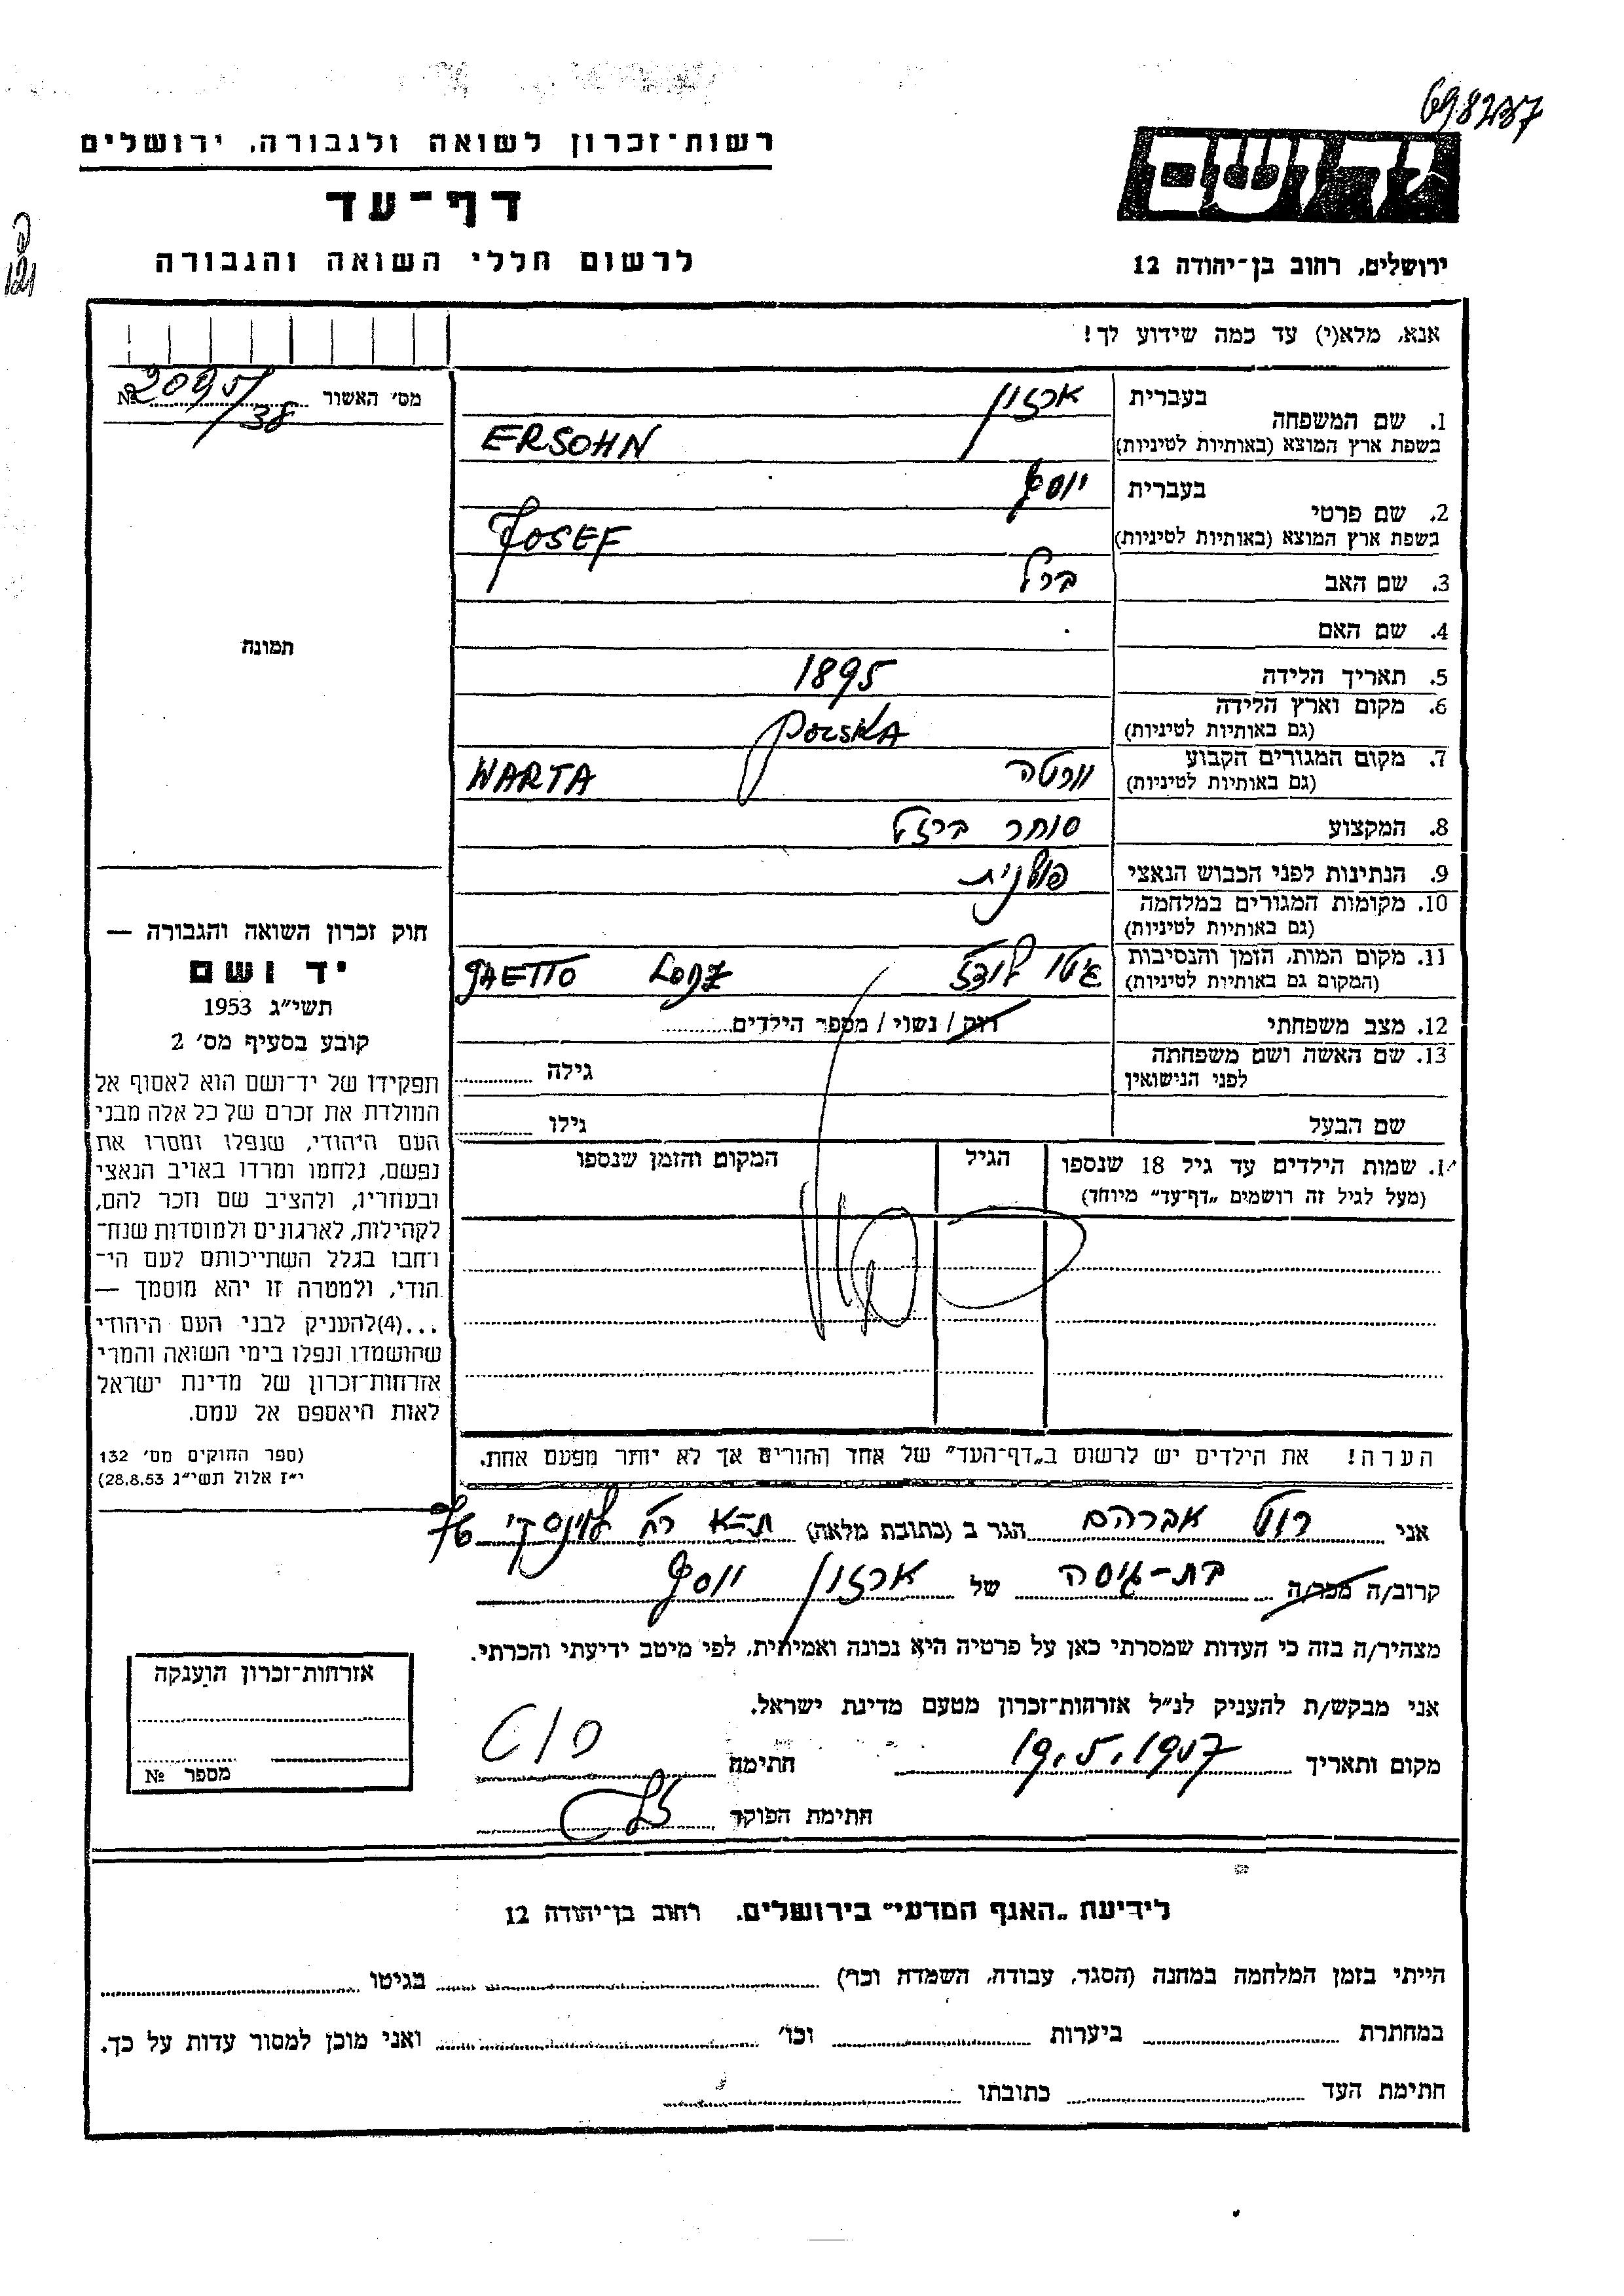 698237
רשות־זכרון לשואה ולגבורה, ירושלים
דף־עד
לרשום חללי השואה והגבורה
יד ושם
ירושלים, רחוב בן־יהודה 12
אנא, מלא(י) עד כמה שידוע לך!
מס׳ האשור № 2095/38
1. שם המשפחה
בעברית ארזון
בשפת ארץ המוצא (באותיות לטיניות) ERSOHN
2. שם פרטי
בעברית יוסף
בשפת ארץ המוצא (באותיות לטיניות) JOSEF
3. שם האב ברל
4. שם האם
5. תאריך הלידה 1895
6. מקום וארץ הלידה
(גם באותיות לטיניות) POLSKA
7. מקום המגורים הקבוע
(גם באותיות לטיניות) וורטה WARTA
8. המקצוע סוחר ברזל
9. הנתינות לפני הכבוש הנאצי פולנית
10. מקומות המגורים במלחמה
(גם באותיות לטיניות)
11. מקום המות, הזמן והנסיבות
(המקום גם באותיות לטיניות) גיטו לודז GHETTO LODZ
12. מצב משפחתי רווק / נשוי / מספר הילדים
13. שם האשה ושם משפחתה
לפני הנישואין גילה
שם הבעל גילו
שמות הילדים עד גיל 18 שנספו
(מעל לגיל זה רושמים „דף־עד״ מיוחד)
הגיל
המקום והזמן שנספו
הערה! את הילדים יש לרשום ב„דף־העד״ של אחד ההורים אך לא יותר מפעם אחת.
תמונה
חוק זכרון השואה והגבורה —
יד ושם
תשי״ג 1953
קובע בסעיף מס׳ 2
תפקידו של יד־ושם הוא לאסוף אל
המולדת את זכרם של כל אלה מבני
העם היהודי, שנפלו ומסרו את
נפשם, נלחמו ומרדו באויב הנאצי
ובעוזריו, ולהציב שם וזכר להם,
לקהילות, לארגונים ולמוסדות שנח־
רבו בגלל השתייכותם לעם הי־
הודי, ולמטרה זו יהא מוסמך —
...(4)להעניק לבני העם היהודי
שהושמדו ונפלו בימי השואה והמרי
אזרחות־זכרון של מדינת ישראל
לאות היאספם אל עמם.
(ספר החוקים מס׳ 132
י״ז אלול תשי״ג 28.8.53)
אני רוט אברהם הגר ב (כתובת מלאה) ת-א רח׳
קרוב/ה מכר/ה בת-גיסה של ארזון יוסף
מצהיר/ה בזה כי העדות שמסרתי כאן על פרטיה היא נכונה ואמיתית, לפי מיטב ידיעתי והכרתי.
אני מבקש/ת להעניק לנ״ל אזרחות־זכרון מטעם מדינת ישראל.
מקום ותאריך 19.5.1957 חתימה
חתימת הפוקד
אזרחות־זכרון הוענקה
מספר №
לידיעת „האגף המדעי״ בירושלים. רחוב בן־יהודה 12
הייתי בזמן המלחמה במחנה (הסגר, עבודה, השמדה וכד׳) בגיטו
במחתרת ביערות וכו׳ ואני מוכן למסור עדות על כך.
חתימת העד כתובתו